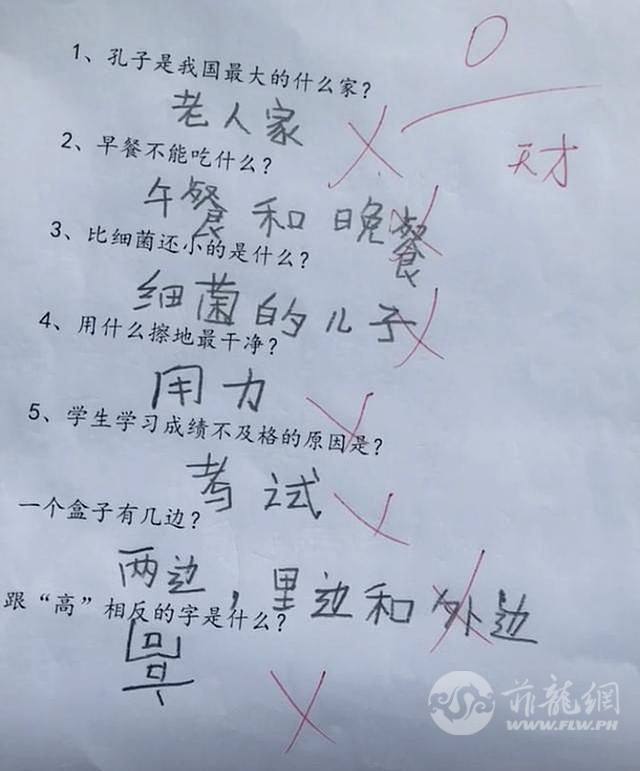 0
1、孔子是我国最大的什么家？
老人家
天才
2、早餐不能吃什么？
午餐和晚餐
3、比细菌还小的是什么？
细菌的儿子
4、用什么擦地最干净？
用力
5、学生学习成绩不及格的原因是？
考试
一个盒子有几边？
两边，里边和外边
跟“高”相反的字是什么？
菲龍網
WWW.FLW.PH